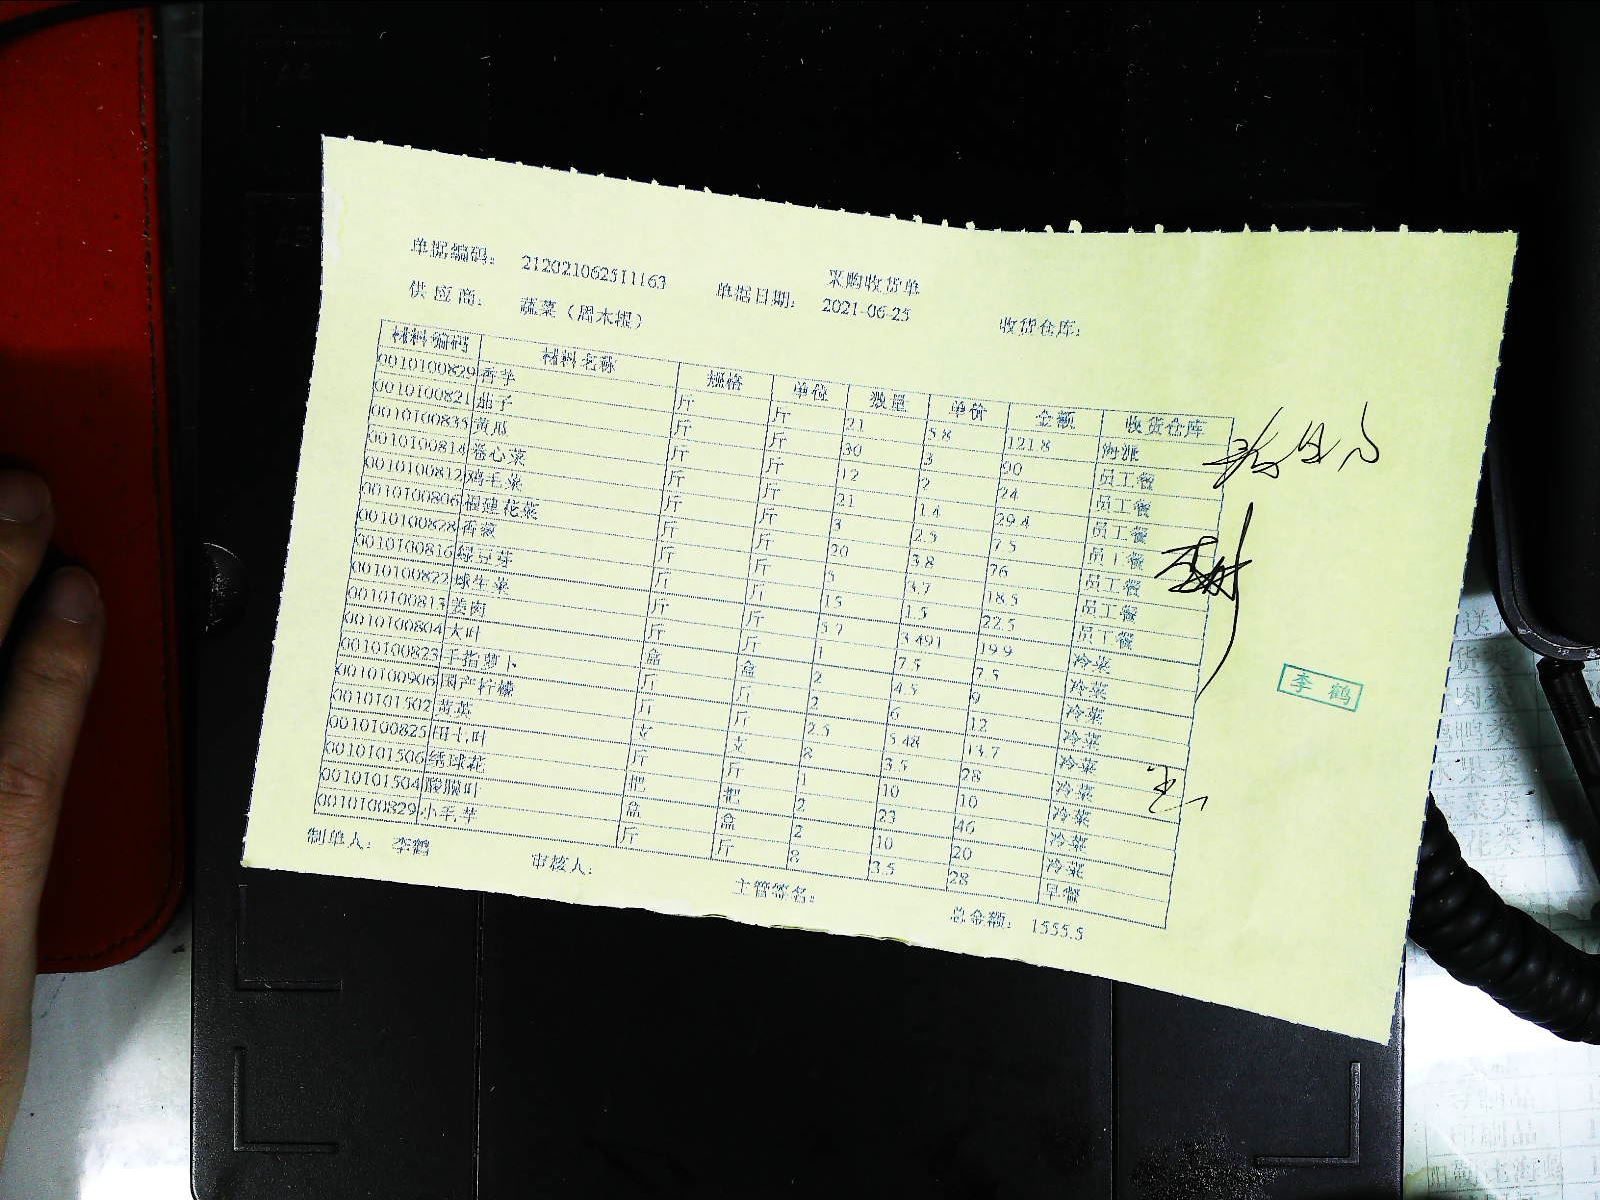 采购收货单
单据编码: 212021062511163 单据日期: 2021-06-25 收货仓库:
供应商: 蔬菜
材料编码 材料名称 规格 单位 数量 单价 金额 收货仓库
0010100829 香芋 斤 斤 21 5.8 121.8 海派
0010100821 茄子 斤 斤 30 3 90 员工餐
0010100835 黄瓜 斤 斤 12 2 24 员工餐
0010100814 卷心菜 斤 斤 21 1.4 29.4 员工餐
0010100812 鸡毛菜 斤 斤 3 2.5 7.5 员工餐
0010100806 福建花菜 斤 斤 20 3.8 76 员工餐
0010100828 香葱 斤 斤 5 3.7 18.5 员工餐
0010100816 绿豆芽 斤 斤 15 1.5 22.5 员工餐
0010100822 球生菜 斤 斤 5.7 3.491 19.9 冷菜
0010100813 姜肉 斤 斤 1 7.5 7.5 冷菜
0010100804 大叶 盒 盒 2 4.5 9 冷菜
0010100823 手指萝卜 斤 斤 2 6 12 冷菜
0010100906 国产柠檬 斤 斤 2.5 5.48 13.7 冷菜
0010101502 支 支 8 3.5 28 冷菜
0010100825 斤 斤 1 10 10 冷菜
0010101506 绣球花 把 把 2 23 46 冷菜
0010101504 酸膜叶 盒 盒 2 10 20 冷菜
0010100829 小毛芋 斤 斤 8 3.5 28 早餐
制单人: 李鹤 审核人: 主管签名: 总金额: 1555.5
李鹤